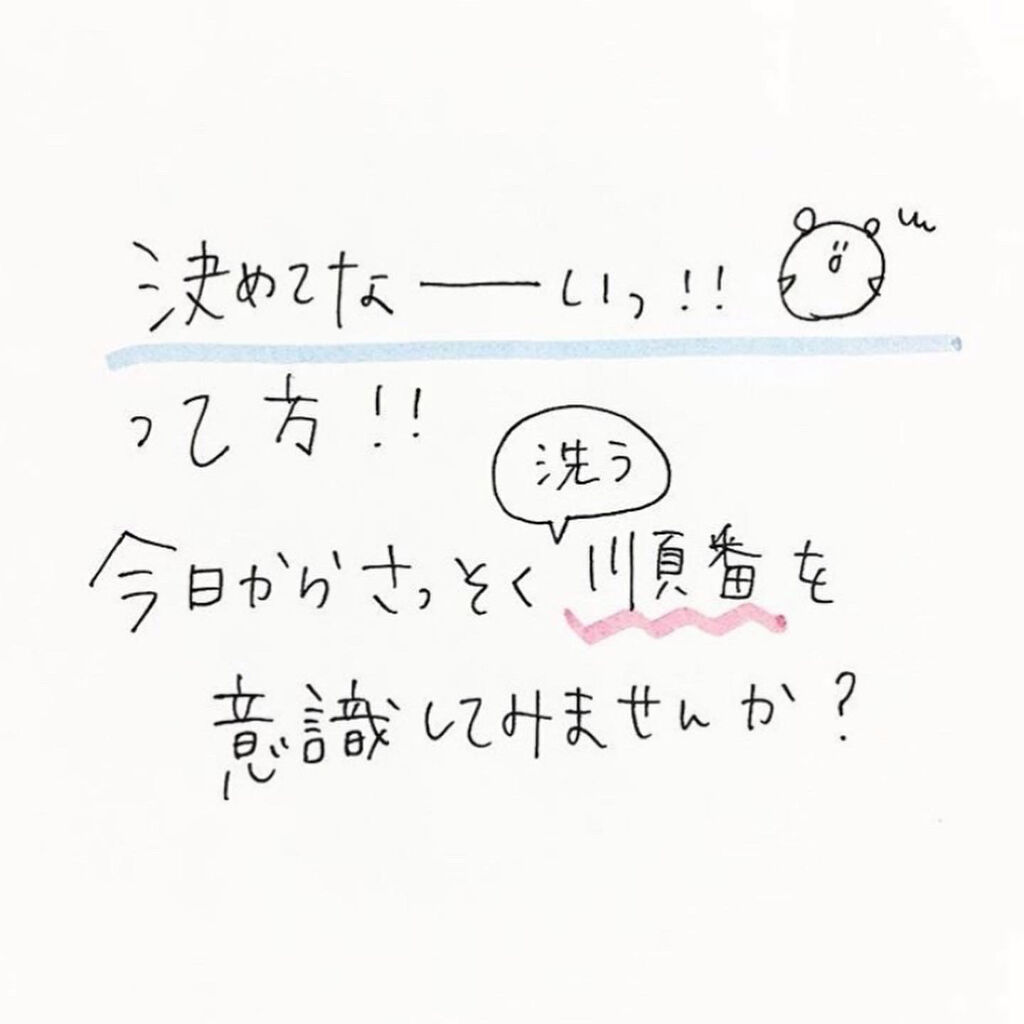 決めてな──いっ!!
って方!!
洗う
今日からさっそく順番を
意識してみませんか?